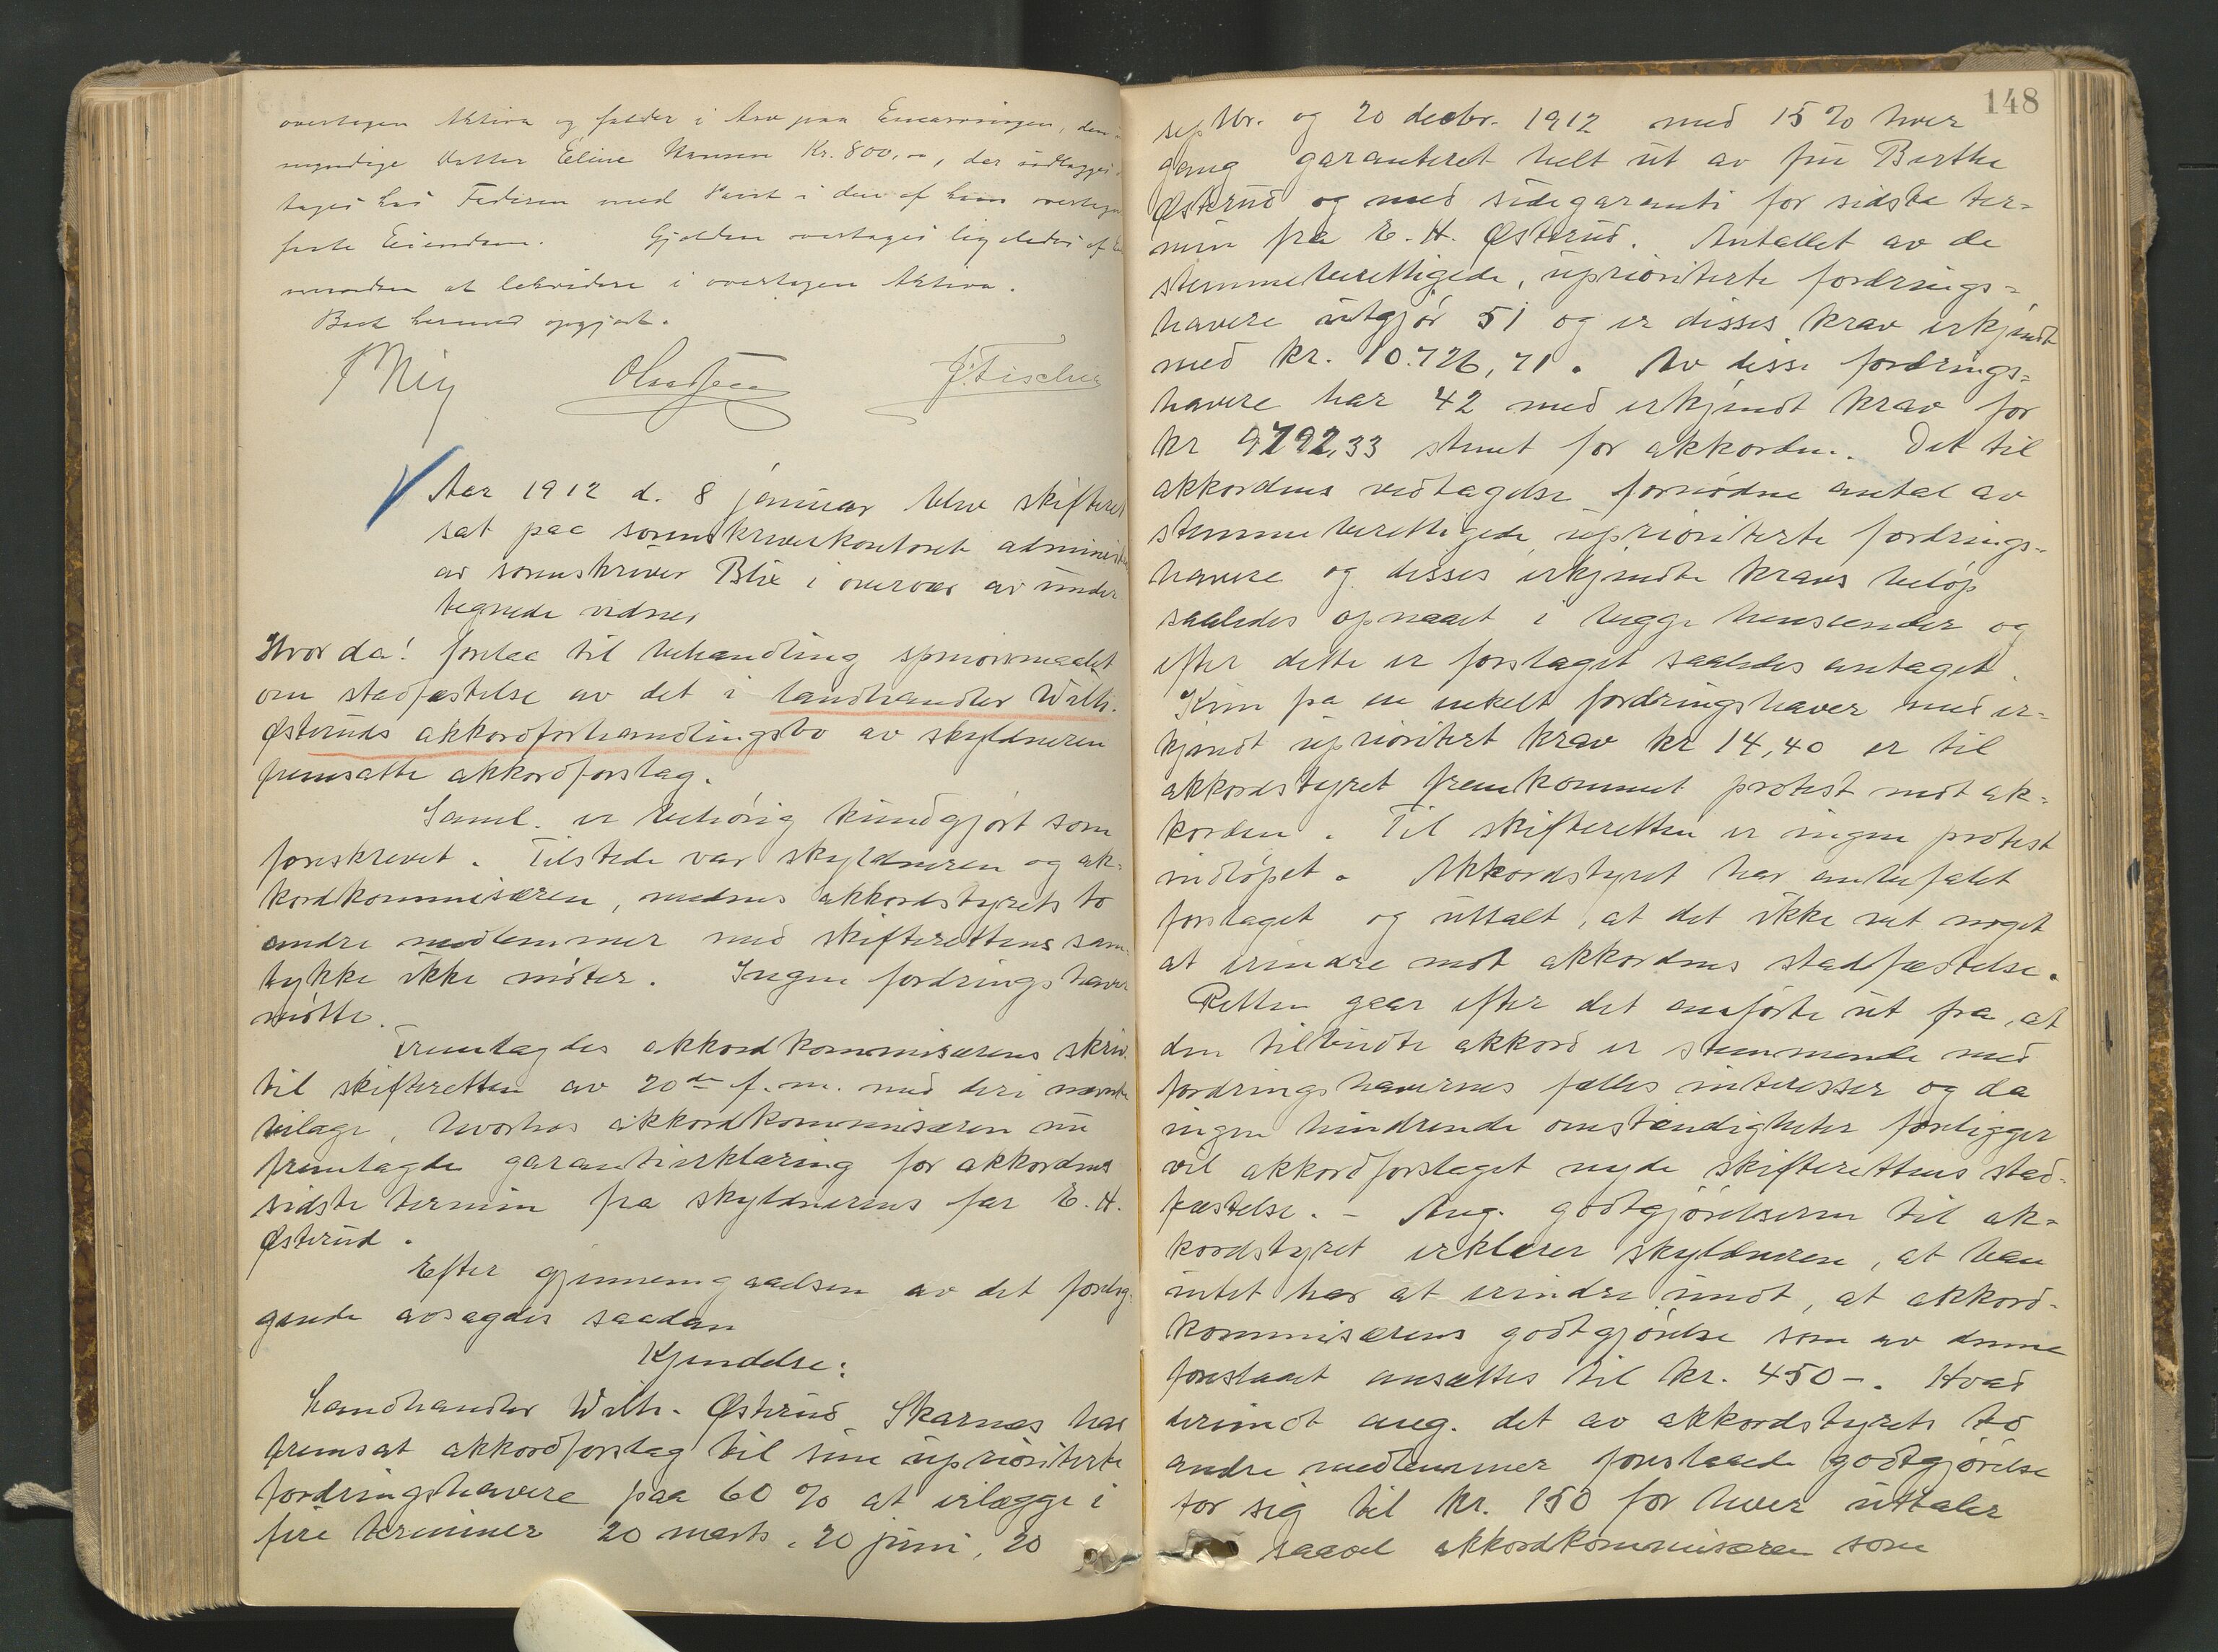 overtagen Aktiva og falder i Arv paa Enearvingen, den u
myndige Datter Eline Hansen Kr. 800,00, der udlægges
tages hos Faderen med Pant i den af ham overtagn
faste Eiendom. Gjælden overtages ligeledes af
at lekvidere i overtagen Aktiva.
Boet hermed opgjort.
J. Fischer
Aar 1912 d. 8 januar blev skifteret
sat paa sorenskriverkontoret administ
av sorenskriver Blix i overvær av under
tegnede vidner
Hvorda! foretaa til behandling spørsmaalet
om stadfæstelse av det i landhandler Wilh.
Østeruds akkordforhandlingsbo av skyldneren
fremsatte akkordforslag.
Saml. er behørig kundgjort som
foreskrevet. Tilstede var skyldneren og ak-
kordkommisæren, medens akkordstyrets to
andre medlemmer med skifterettens sam-
tykke ikke møter. Ingen fordringshaver
møtte.
Fremlagdes akkordkommisærens skriv.
til skifteretten av 20de f.m. med deri nævnte
bilage, hvorhos akkordkommisæren nu
fremlagde garantierklæring for akkordens
sidste termin fra skyldnerens far E. H.
Østerud.
Efter gjennemgaaelsen av det forelig-
gende avsagdes saadan
Kjendelse:
Landhandler Wilh. Østerud Skarnes har
fremsat akkordforslag til sine uprioriterte
fordringshavere paa 60 % at erlægge i
fire terminer 20 marts, 20 juni, 20
148
septbr. og 20 decbr. 1912 med 15 % hver
gang garanteret helt ut av fru Berthe
Østerud og med sidegaranti for sidste ter-
min fra E. H. Østerud. Antallet av de
stemmeberettigede, uprioriterte fordrings-
havere utgjør 51 og er disses krav erkjendt
med kr. 10.726,71. Av disse fordrings-
havere har 42 med erkjendt krav for
kr 9792,33 stemt for akkorden. Det til
akkordens vedtagelse fornødne antal av
stemmeberettigede uprioriterte fordrings-
havere og disses erkjendte kravs beløp
saaledes opnaaet i begge henseender og
efter dette er forslaget saaledes antaget.
Kun fra en enkelt fordringshaver med er-
kjendt uprioritert krav kr 14,40 er til
akkordstyret fremkommet protest mot ak-
korden. Til skifteretten er ingen protest
indløpet. Akkordstyret har anbefalet
forslaget og uttalt, at det ikke vet noget
at erindre mot akkordens stadfæstelse.
Retten gaar efter det anførte ut fra, at
den tilbudte akkord er stemmende med
fordringshavernes fælles interesser og da
ingen hindrende omstændigheter foreligger
vil akkordforslaget nyde skifterettens stad-
fæstelse. - Ang. godtgjørelserne til ak-
kordstyret erklærer skyldneren, at han
intet har at erindre imot, at akkord-
kommisærens godtgjørelse som av denne
foreslaaet ansættes til kr. 450-. Hvad
derimot ang. det av akkordstyrets to
andre medlemmer foreslaaede godtgjørelse
for sig til kr. 150 for hver uttaler
saavel akkordkommisæren som